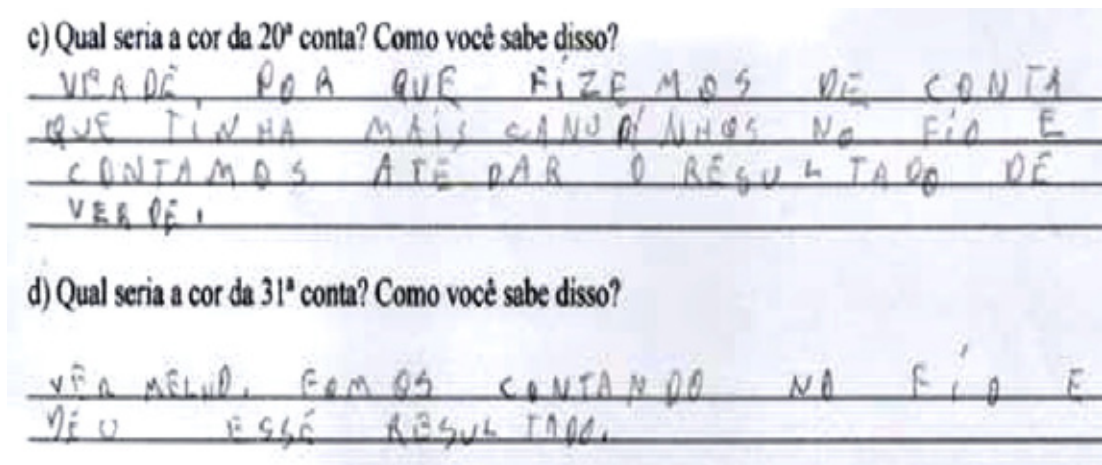 c) Qual seria a cor da 20ª conta? Como você sabe disso?
VERDE, POR QUE FIZEMOS DE CONTA
QUE TINHA MAIS CANUDINHOS NO FIO E
CONTAMOS ATÉ DAR O RESULTADO DE
VERDE.
d) Qual seria a cor da 31ª conta? Como você sabe disso?
VERMELHO. FOMOS CONTANDO NO FIO E
DEU ESSE RESULTADO.